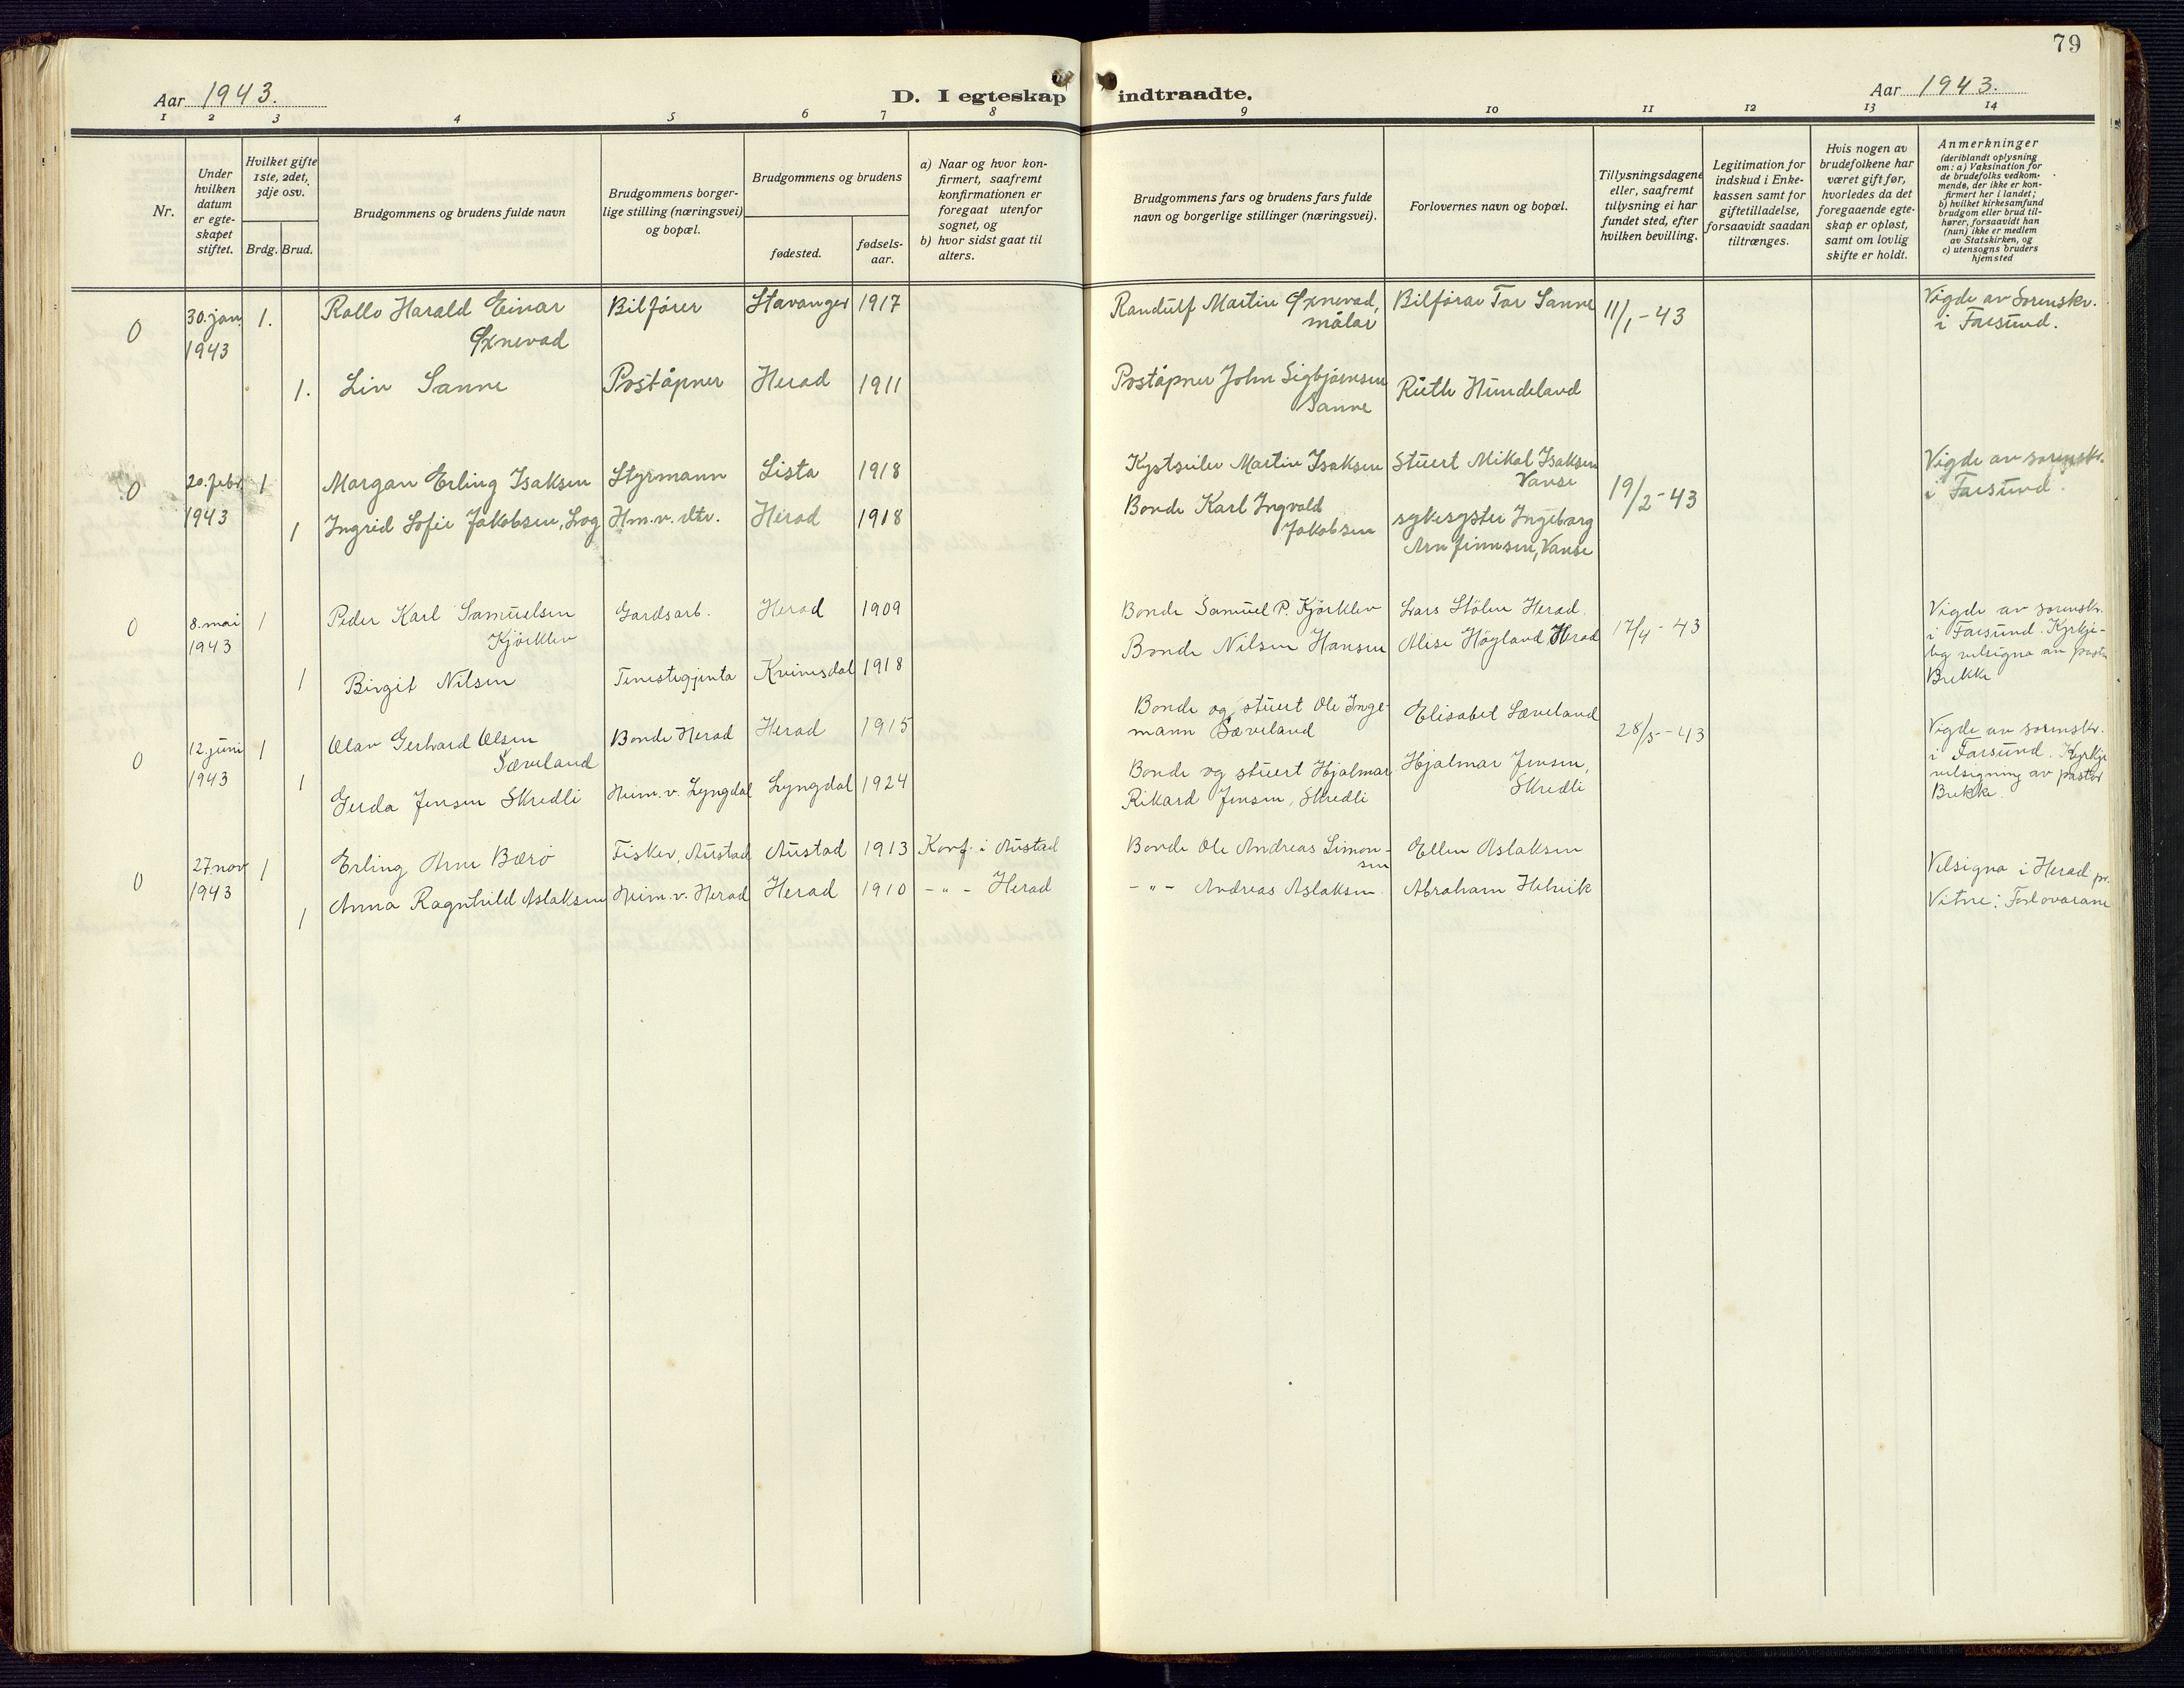 79
Aar 1943.
D. I egteskap indtraadte.
Aar 1943.
1 2 3 4 5 6 7 8 9 10 11 12 13 14
Nr.
Under
hvilken
datum
er egte-
skapet
stiftet.
Hvilket gifte
1ste, 2det,
3dje osv.
Brdg. Brud.
Brudgommens og brudens fulde navn
Brudgommens borger-
lige stilling (næringsvei)
og bopæl.
Brudgommens og brudens
fødested.
fødsels-
aar.
a) Naar og hvor kon-
firmert, saafremt
konfirmationen er
foregaat utenfor
sognet, og
b) hvor sidst gaat til
alters.
Brudgommens fars og brudens fars fulde
navn og borgerlige stillinger (næringsvei).
Forlovernes navn og bopæl.
Tillysningsdagene
eller, saafremt
tillysning ei har
fundet sted, efter
hvilken bevilling.
Legitimation for
indskud i Enke-
kassen samt for
giftetilladelse,
forsaavidt saadan
tiltrænges.
Hvis nogen av
brudefolkene har
været gift før,
hvorledes da det
foregaaende egte-
skap er opløst,
samt om lovlig
skifte er holdt.
Anmerkninger
(deriblandt oplysning
om: a) Vaksination for
de brudefolks vedkom-
mende, der ikke er kon-
firmert her i landet;
b) hvilket kirkesamfund
brudgom eller brud til-
hører, forsaavidt han
(hun) ikke er medlem
av Statskirken, og
c) utensogns bruders
hjemsted
0 30. jan 1943 1. Rollo Harald Einar
Øxnevad
Bilfører Stavanger 1917
Randulf Martin Øxnevad,
målar
Bilførar Tor Sanne
11/1-43
Vigde av Sorenskr.
i Farsund.
1. Liv Sanne Poståpner Herad 1911
Poståpner John Sigbjørnsen
Sanne
Ruth Hundeland
0 20. febr. 1943 1 Morgan Erling Isaksen Styrmann Lista 1918
Kystseiler Martin Isaksen
Stuert Mikal Isaksen
Vanse
19/2-43
Vigde av sorenskr.
i Farsund.
1 Ingrid Sofie Jakobsen, Log Hm.v. dtr. Herad 1918
Bonde Karl Ingvald
Jakobsen
sykesyster Ingeborg
Arnfinnsen, Vanse
0 8. mai 1943 1 Peder Karl Samuelsen
Kjørklev
Gardsarb. Herad 1909
Bonde Samuel P. Kjørklev
Lars Stølen Herad
17/4-43
Vigde av sorenskr.
i Farsund. Kyrkje-
leg velsigna av pastor
Brekke
1 Birgit Nilsen Tenestegjenta Kvinesdal 1918
Bonde Nilsen Hansen
Alise Høgland Herad
0 12. juni 1943 1 Olav Gerhard Olsen
Sæveland
Bonde Herad Herad 1915
Bonde og stuert Ole Inge-
mann Sæveland
Elisabet Sæveland
28/5-43
Vigde av sorenskr.
i Farsund. Kyrkje
velsigning av pastor
Brekke.
1 Gerda Jensen Skredli Heim.v. Lyngdal Lyngdal 1924
Bonde og stuert Hjalmar
Rikard Jensen, Skredli
Hjalmar Jensen,
Skredli
0 27. nov 1943 1 Erling Arne Bærø Fisker, Austad Austad 1913 Konf. i Austad
Bonde Ole Andreas Simon-
sen
Ellen Aslaksen
Velsigna i Herad pr.
Vitne: Forlovarane
1 Anna Ragnhild Aslaksen Heim.v. Herad Herad 1910 -"- Herad
-"- Andreas Aslaksen
Abraham Helvik